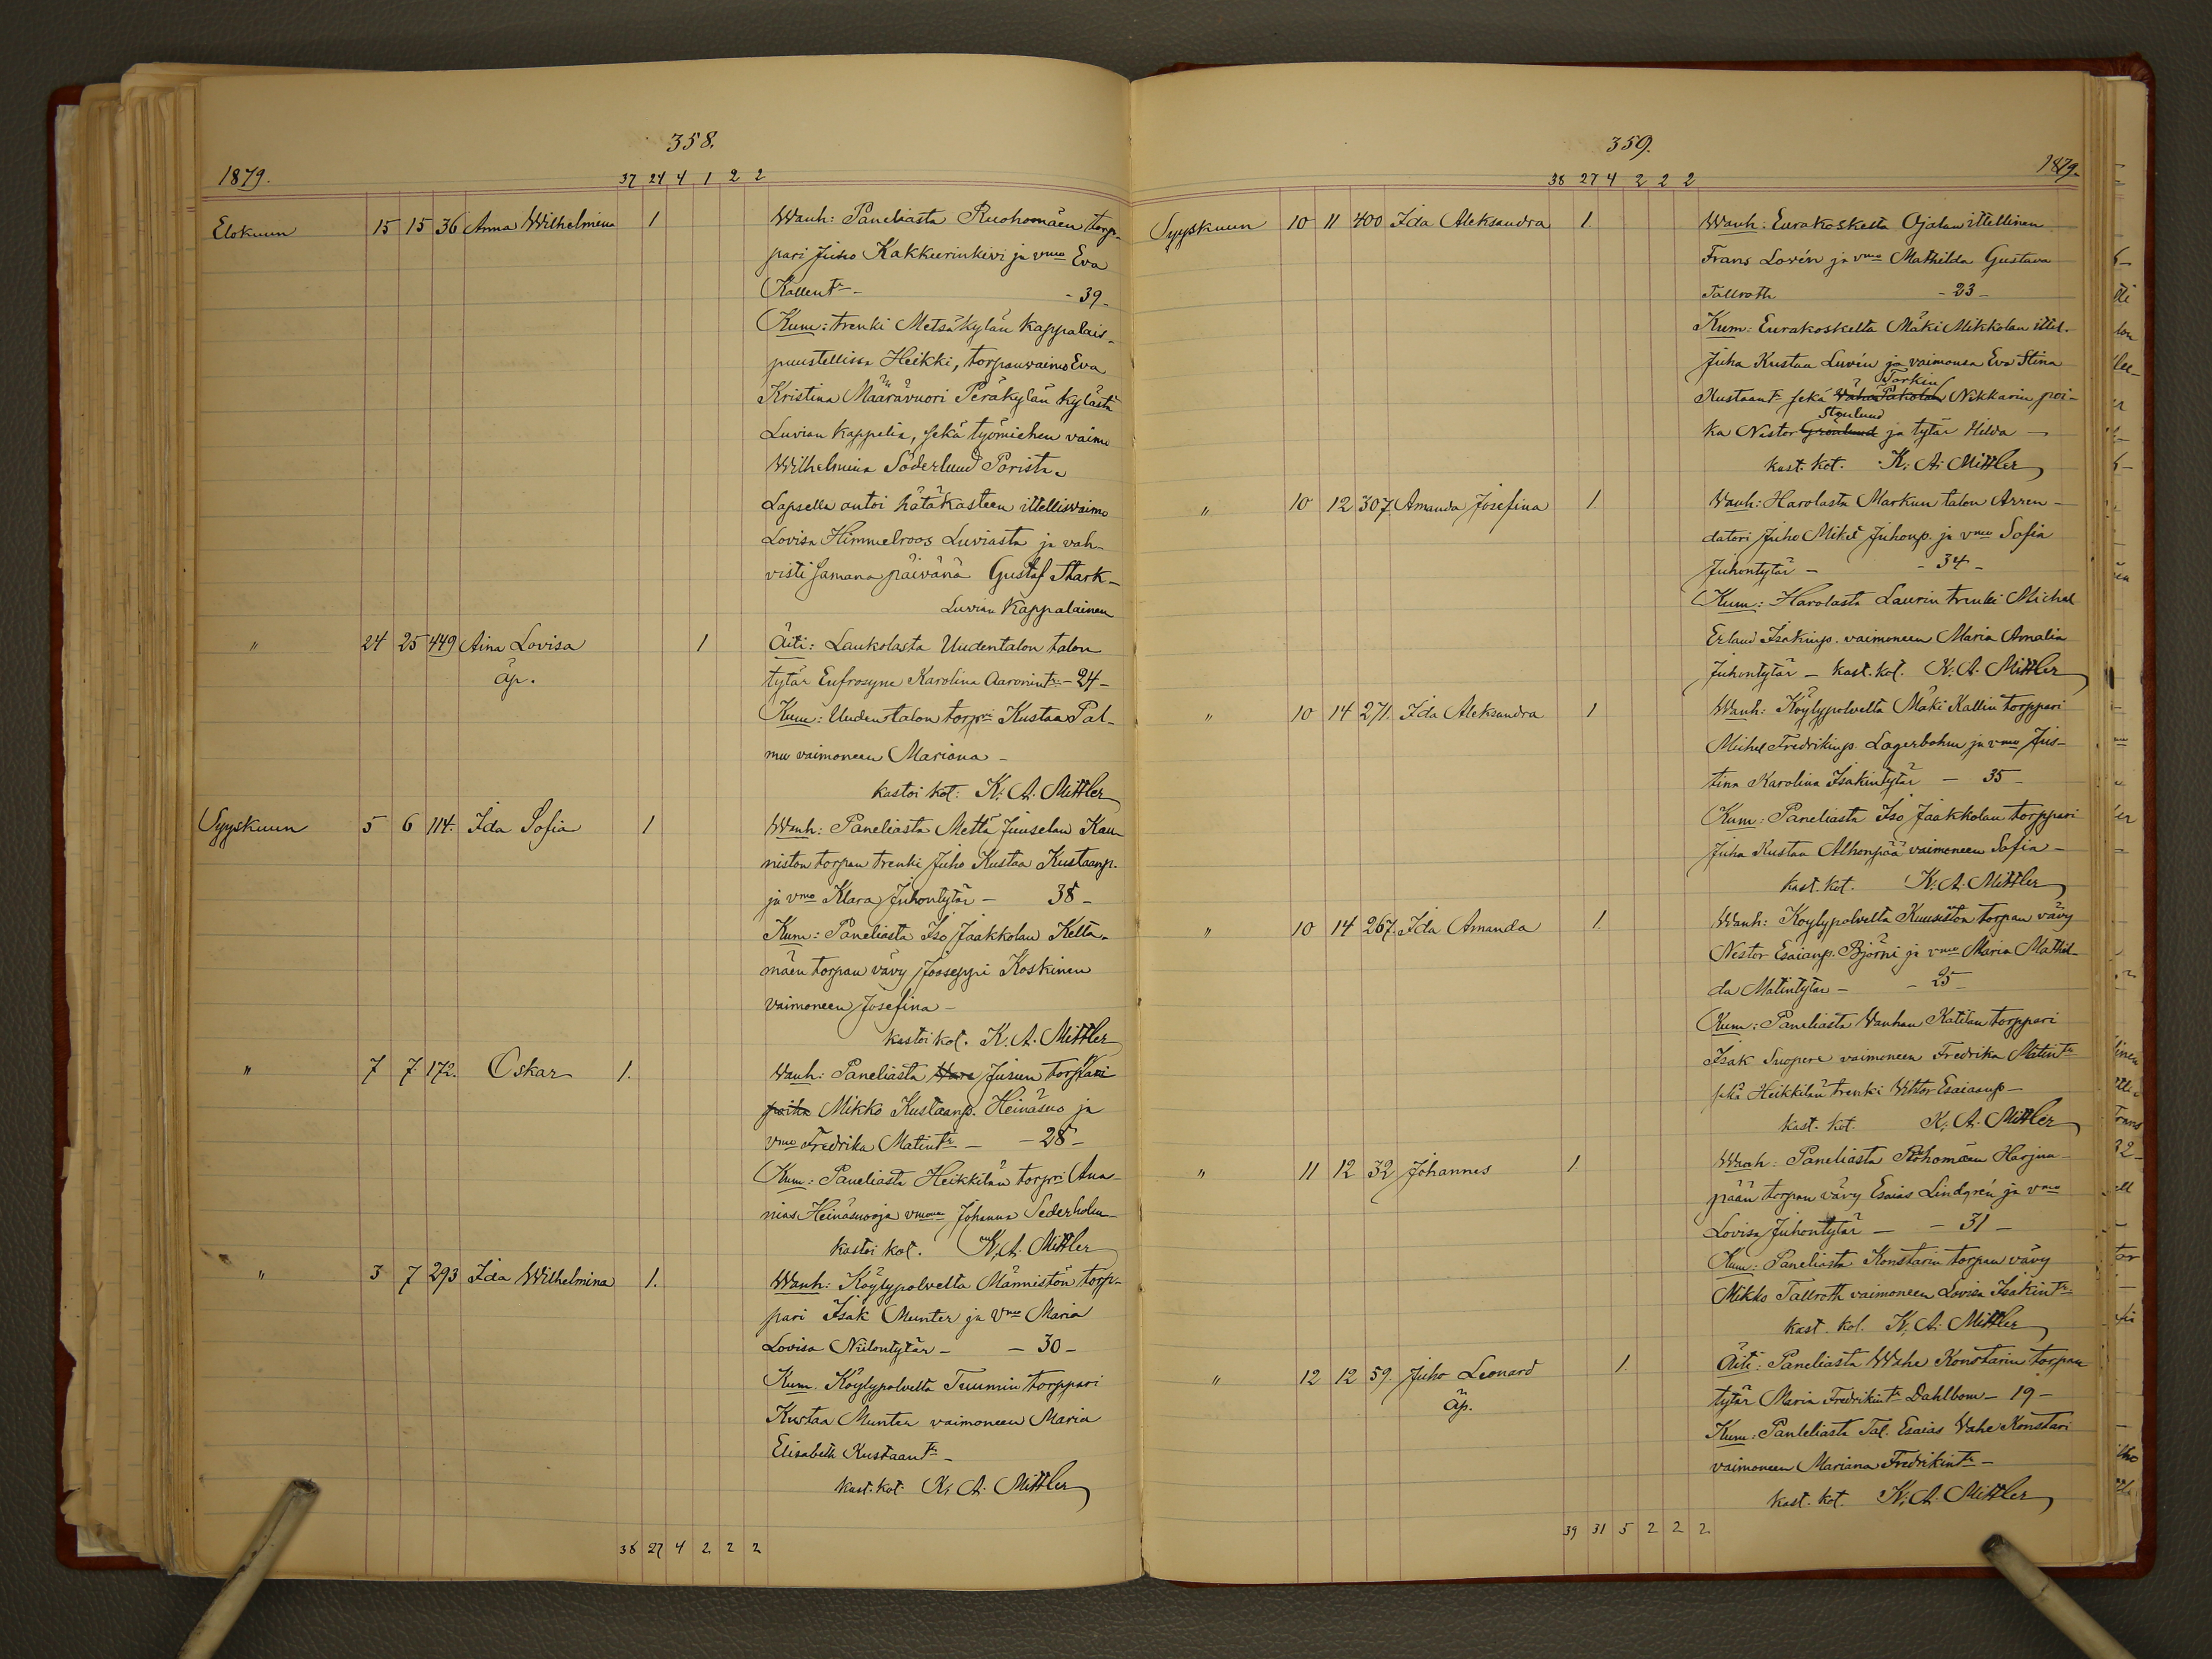 358.
1879.
37 24 4 1 2 2
Elokuun 15 15 36 Anna Wilhelmina 1 Wanh: Paneliasta Ruohomäen torp-
pari Juho Kakkurinkivi ja vmo Eva
Kallentr - - 39 -
Kum: trenki Metsäkylän kappalais-
puustellissa Heikki, torpanvaimo Eva
Kristina Määrävuori Peräkylän kylästä
Luvian kappelia, sekä työmiehen vaimo
Wilhelmina Söderlund Porista.
Lapsella antoi hätäkasteen ittellisvaimo
Lovisa Himmelroos Luviasta ja vah-
visti samana päivänä Gustaf Stark -
Luvian Kappalainen
" 24 25 449 Aina Lovisa 1 Äiti: Laukolasta Uudentalon talon
äp. tytär Eufrosyne Karolina Aaronintr - 24 -
Kum: Uudentalon torpri Kustaa Pal-
mu vaimoneen Mariana -
kastoi kot: K. A. Mittler
Syyskuun 5 6 114. Ida Sofia 1 Wanh: Paneliasta Mettä Juuselan Kau-
niston torpan trenki Juho Kustaa Kustaanp.
ja vmo Klara Juhontytär - 38 -
Kum: Paneliasta Iso Jaakkolan Ketta-
mäen torpan vävy Jooseppi Koskinen
vaimoneen Josefina -
kastoi kot. K. A. Mittler
" 7 7 172. Oskar 1. Wanh: Paneliasta Jusun torppari
poika Mikko Kustaanp. Heinäsuo ja
vmo Fredrika Matintr - - 28 -
Kum: Paneliasta Heikkilän torpri Ana-
nias Heinäsuo ja vmona Johanna Sederholm -
kastoi kot. K. A. Mittler
" 3 7 293 Ida Wilhelmina 1. Wanh: Köylypolvelta Männistön torp-
pari Isak Munter ja vmo Maria
Lovisa Niilontytär - - 30 -
Kum. Köylypolvelta Tuumin torppari
Kustaa Munter vaimoneen Maria
Elisabeth Kustaantr -
kast. kot. K. A. Mittler
38 27 4 2 2 2
359.
1879.
38 27 4 2 2 2
Syyskuun 10 11 400 Ida Aleksandra 1. Wanh: Eurakoskelta Ojalan ittellinen
Frans Lovén ja vmo Mathilda Gustava
Tallroth - 23 -
Kum: Eurakoskelta Mäki Mikkolan ittel.
Juha Kustaa Luvén ja vaimonsa Eva Stina
Torkin
Kustaantr sekä Vähä Pakolan Nikkarin poi-
Stenlund
ka Nestor Grönlund ja tytär Hilda -
kast. kot. K. A. Mittler
" 10 12 307. Amanda Josefina 1. Wanh: Harolasta Markun talon Arren-
datori Juho Mikel Juhonp. ja vmo Sofia
Juhontytär - - 34 -
Kum: Harolasta Laurin trenki Michel
Erland Isakinp. vaimoneen Maria Amalia
Juhontytär - kast. kot. K. A. Mittler
" 10 14 271. Ida Aleksandra 1 Wanh: Köylypolvelta Mäki Kallin torppari
Michel Fredrikinp. Lagerbohm ja vmo Jus-
tina Karolina Isakintytär - 35 -
Kum: Paneliasta Iso Jaakkolan torppari
Juha Kustaa Alhonpää vaimoneen Sofia -
kast. kot. K. A. Mittler
" 10 14 267. Ida Amanda 1. Wanh: Köylypolvelta Kuusiston torpan vävy
Nestor Esaianp. Björni ja vmo Maria Mathil-
da Matintytär - - 25 -
Kum: Paneliasta Vanhan Katilan torppari
Isak Suopere vaimoneen Fredrika Matintr
sekä Heikkilän trenki Viktor Esaiaanp -
kast. kot. K. A. Mittler
" 11 12 32 Johannes 1 Wanh: Paneliasta Ruohomäen Harjun-
pään torpan vävy Esaias Lindgrén ja vmo
Lovisa Juhontytär - - 31 -
Kum: Paneliasta Konstarin torpan vävy
Mikko Tallroth vaimoneen Lovisa Isakintr
kast. kot. K. A. Mittler
" 12 12 59. Juho Leonard 1. Äiti: Paneliasta Wähe Konstarin torpan
äp. tytär Maria Fredrikintr Dahlbom - 19 -
Kum: Panleliasta Tal. Esaias Vähe Konstari
vaimoneen Mariana Fredrikintr -
kast. kot. K. A. Mittler
39 31 5 2 2 2